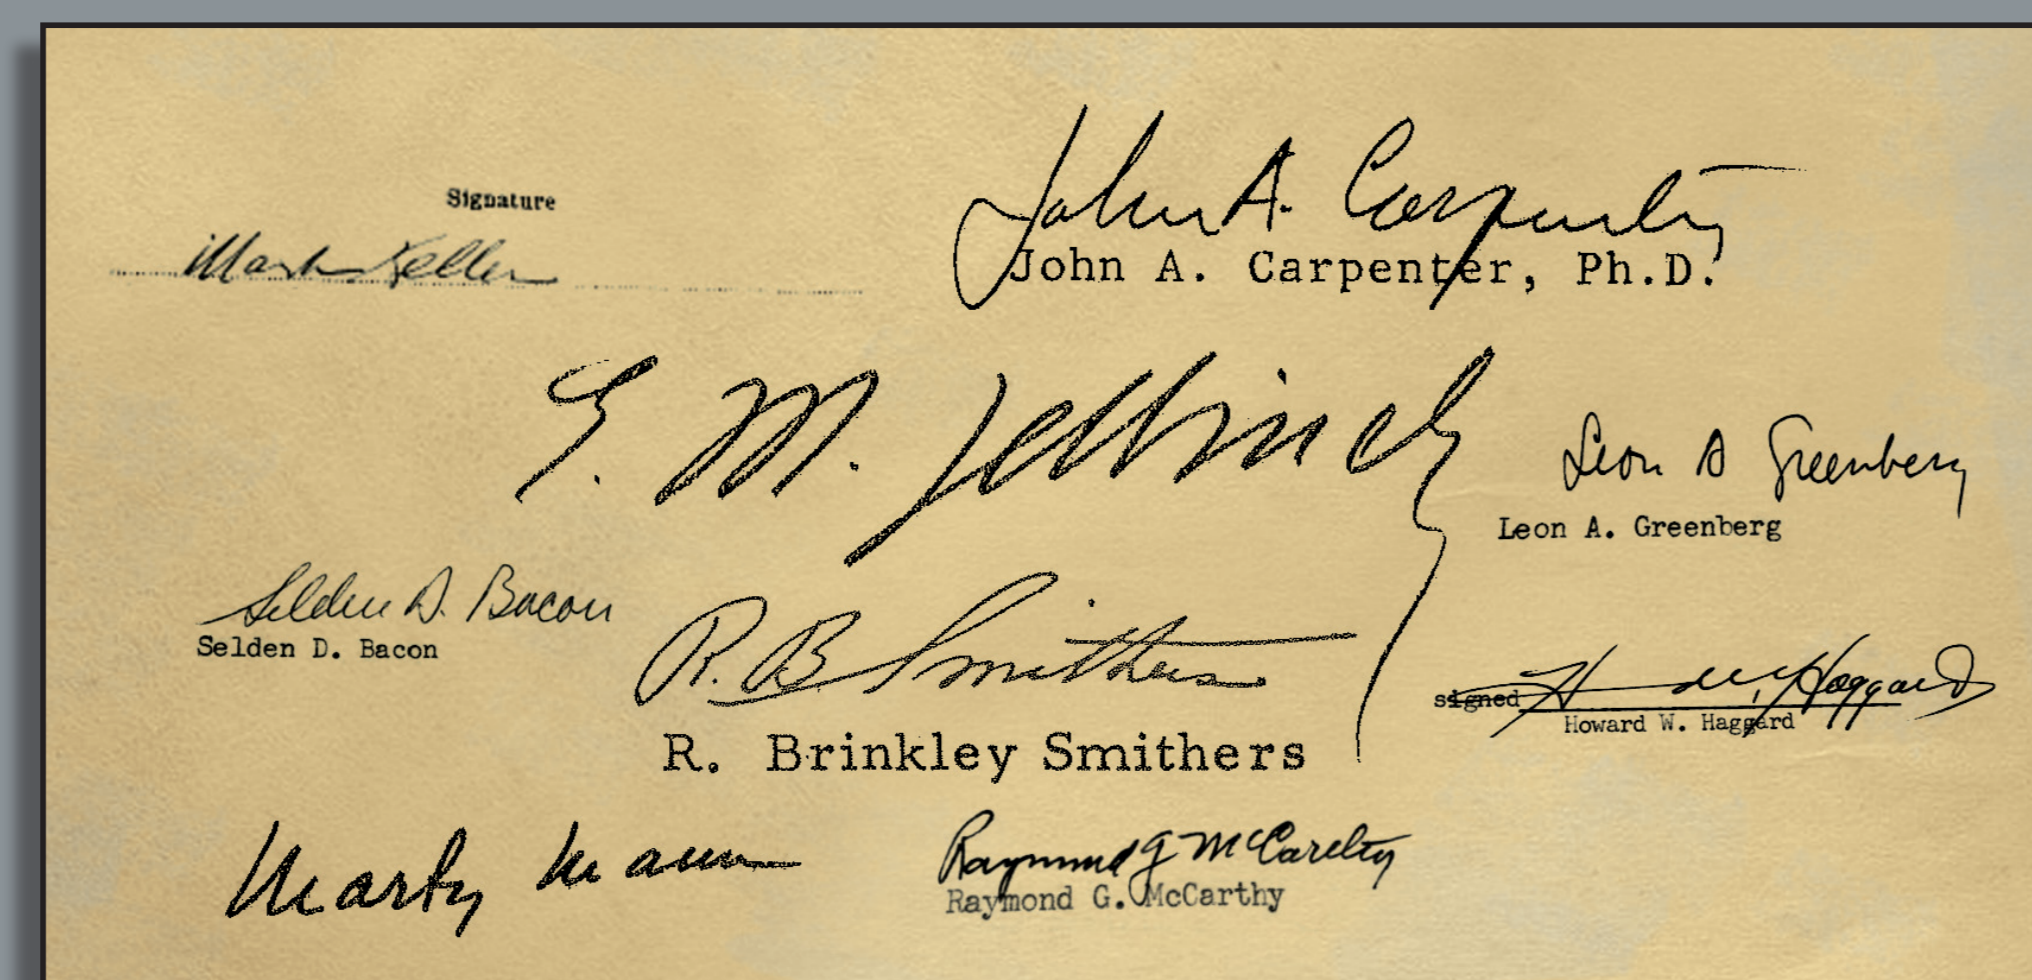 Signature
Mark Keller
John A. Carpenter
John A. Carpenter, Ph.D.
E. M. Jellinek
Leon A Greenberg
Leon A. Greenberg
Selden D. Bacon
Selden D. Bacon
R. B Smithers
R. Brinkley Smithers
signed Howard W. Haggard
Howard W. Haggard
Marty Mann
Raymond G McCarthy
Raymond G. McCarthy